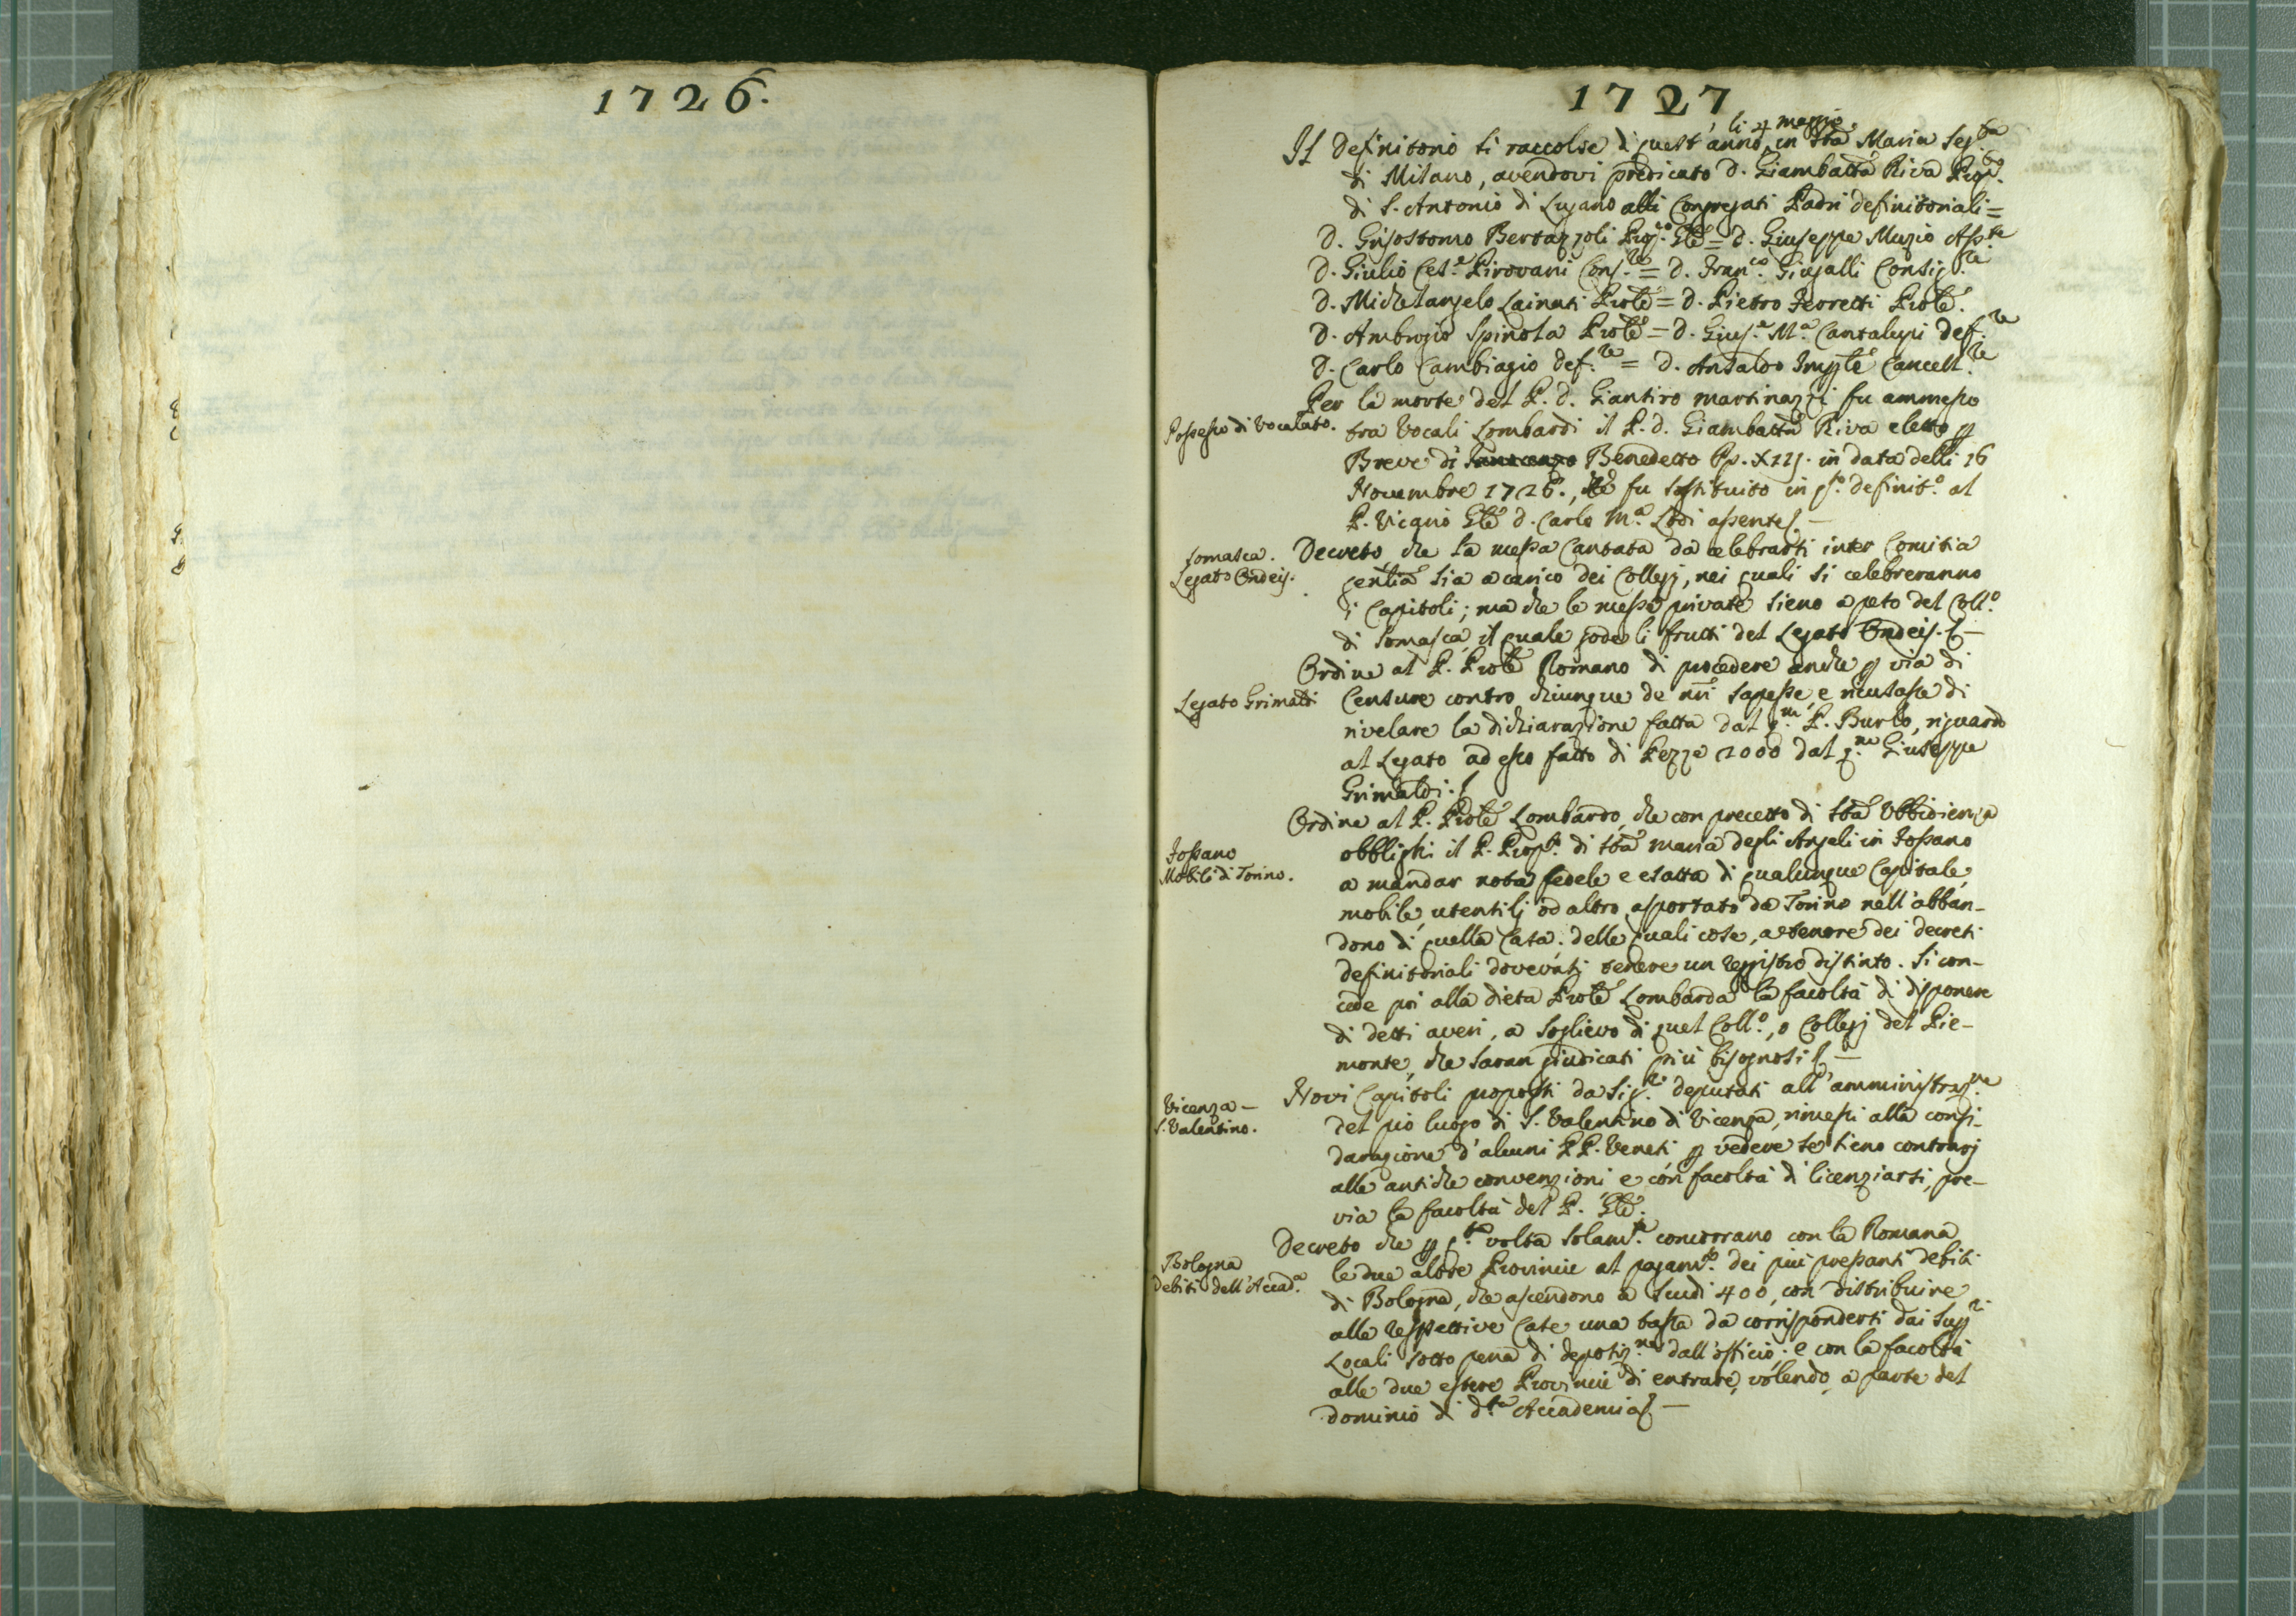 1726.
1727
li 4 maggio
Il definitorio si raccolse di quest'anno, in Sta Maria Seg.ta
di Milano, avendovi predicato D. Giambatta Riva Prep.to
di S. Antonio di Lugano alli Congregati Padri definitoriali =
D. Grisostomo Bertazzoli Prep.to Gle = D. Giuseppe Muzio Ass.te
D. Giulio Ces.e Pirovani Cons.re = D. Fran.co Giugalli Consig.re
D. Michelangelo Lainati Prole = D. Pietro Feretti Prole.
D. Ambrogio Spinola Prole = D. Gius.e M.a Cantalupi Def.re
D. Carlo Cambiagio Def.re = D. Ansaldo Cancell.re
Per la morte del P. D. Giantiro Martinazzi fu ammesso
Possesso di Vocalato.
tra Vocali Lombardi il P. D. Giambatta Riva eletto p
Breve di Innocenzo Benedetto Pp. XIII. in data delli 16
Novembre 1726., che fu sostituito in q.sto definit.o al
P. Vicario Gle D. Carlo M.a Lodi assente. —
Somasca.
Legato Ondeis.
Decreto, che la messa Cantata da celebrarsi inter Comitia
gentia sia a carico dei Collegj, nei quali si celebreranno
i Capitoli; ma che le messe private sieno a peso del Coll.o
di Somasca, il quale gode li frutti del Legato Ondeis. —
Ordine al P. Prole Romano di procedere anche p via di
Legato Grimaldi
Censure contro chiunque de nri sapesse, e ricusasse di
rivelare la dichiarazione fatta dal q.m P. Burlo, riguardo
al Legato ad esso fatto di Pezze 2000 dal q.m Giuseppe
Grimaldi.
Ordine al P. Prole Lombardo, che con precetto di Sta Ubbidienza
Fossano
Mobili di Torino.
obblighi il P. Prep.to di Sta Maria degli Angeli in Fossano
a mandar nota fedele e esatta di qualunque Capitale,
mobile, utensilj od altro asportato da Torino nell'abban-
dono di quella Casa: delle quali cose, a tenore dei decreti
definitoriali dovevasi tenere un registro distinto. Si con-
cede poi alla dieta Prole Lombarda la facoltà di disponere
di detti averi, a soglievo di quel Coll.o, o Collegj del Pie-
monte, che saran giudicati più bisognosi —
Vicenza —
S. Valentino.
Novi Capitoli proposti da Sig.ri deputati all'amministraz.ne
del pio luogo di S. Valentino di Vicenza, rimessi alla consi-
darazione d'alcuni PP. Veneti p vedere se sieno contrarj
alle antiche convenzioni e con facoltà di licenziarsi, pre-
via la facoltà del P. Gle.
Decreto che p q.ta volta solam.te concorrano con la Romana
Bologna
debiti dell'Accad.a
le due altre Provincie al pagam.to dei più pressanti debiti
di Bologna, che ascendono a Scudi 400, con distribuire
alle respettive Case una tassa da corrispondersi dai Supp.ri
Locali sotto pena di deposiz.ne dall'officio: e con la facoltà
alle due estere Provincie di entrare, volendo, a parte del
dominio di d.ta Accademia —